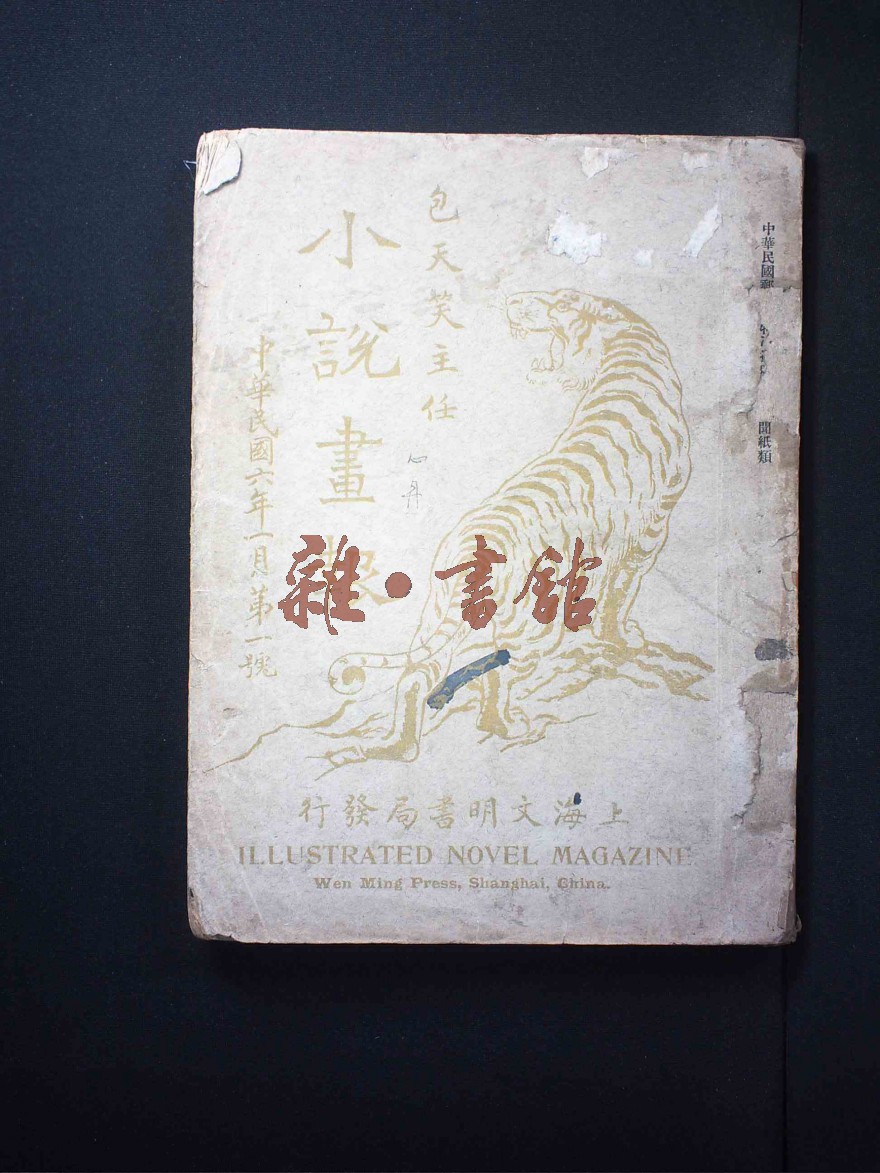 中華民國郵
聞紙類
包天笑主任
小說畫報
中華民國六年一月第一號
心丹
雜·書館
上海文明書局發行
ILLUSTRATED NOVEL MAGAZINE
Wen Ming Press, Shanghai, China.